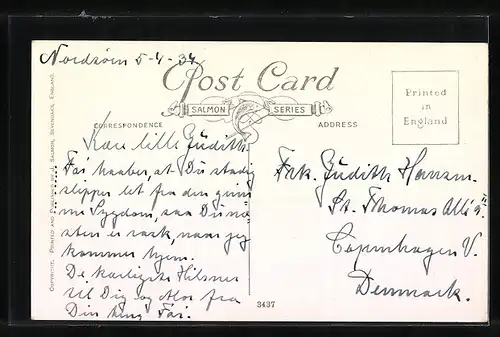 Nordsøen 5-4-34
Post Card
SALMON SERIES
CORRESPONDENCE
ADDRESS
Printed
in
England
Kære lille Judith
Far haaber, at Du stadig
slipper let fra den grim
me Sygdom, saa Du næ
sten er rask, naar jeg
kommer hjem.
De kærligste Hilsner
til Dig og Mor fra
Din Far.
Frk. Judith Hansen.
St. Thomas Allé
Copenhagen V.
Denmark.
3437
COPYRIGHT. PRINTED AND PUBLISHED BY J. SALMON, SEVENOAKS, ENGLAND.